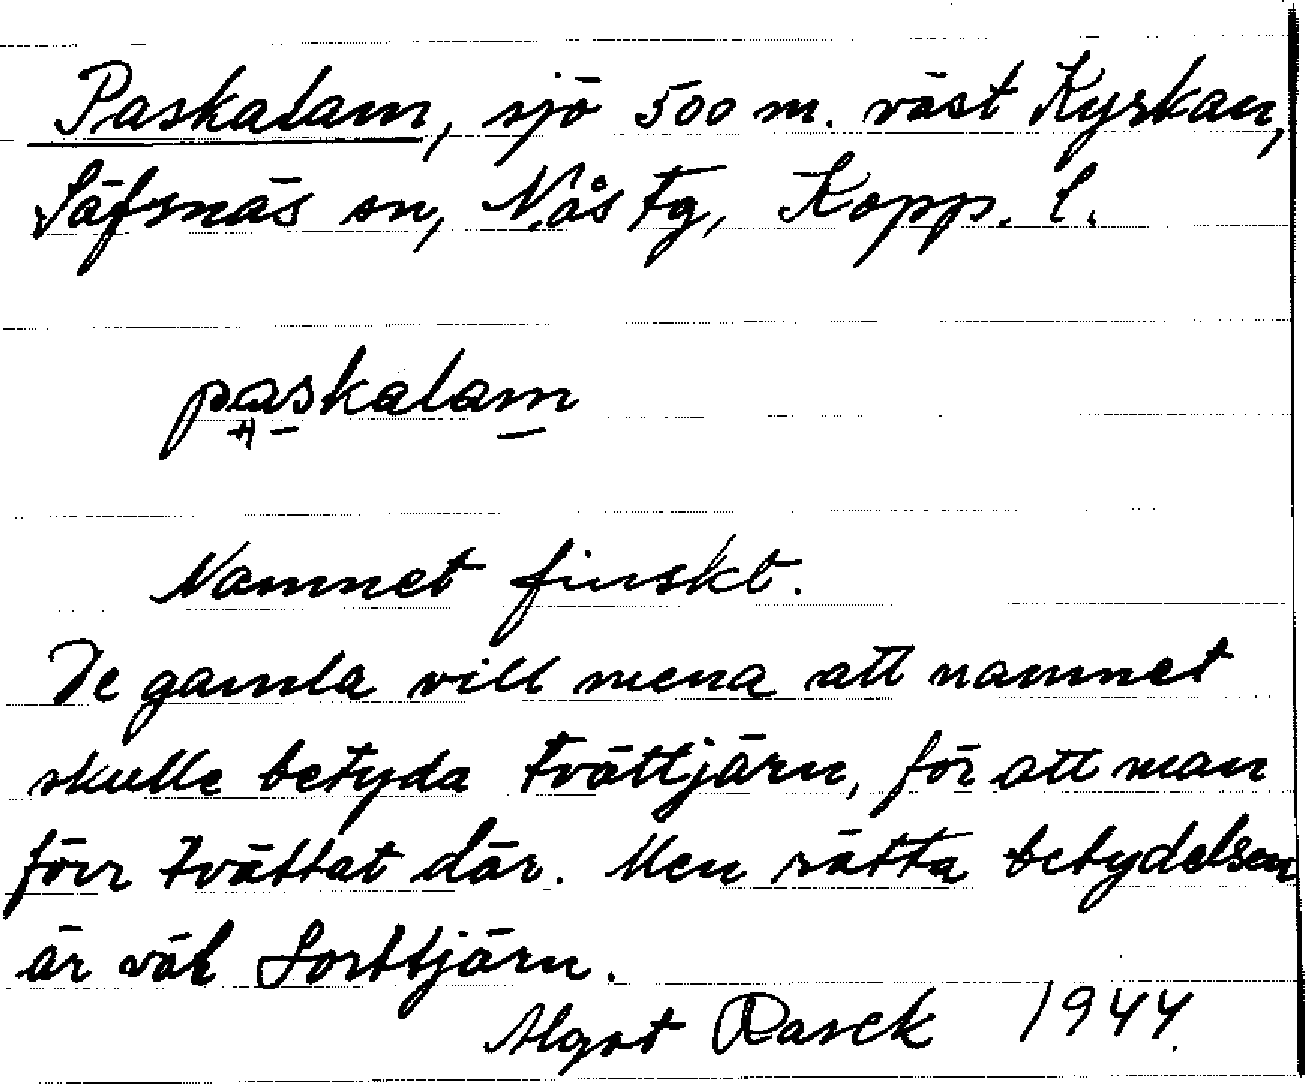 Paskalam, sjö 500 m. väst Kyrkan,
Säfsnäs sn, Nås tg, Kopp. l.
paskalam
Namnet finskt.
De gamla vill mena att namnet
skulle betyda tvättjärn, för att man
förr tvättat där. Men rätta betydelsen
är väl
Algot 1944.